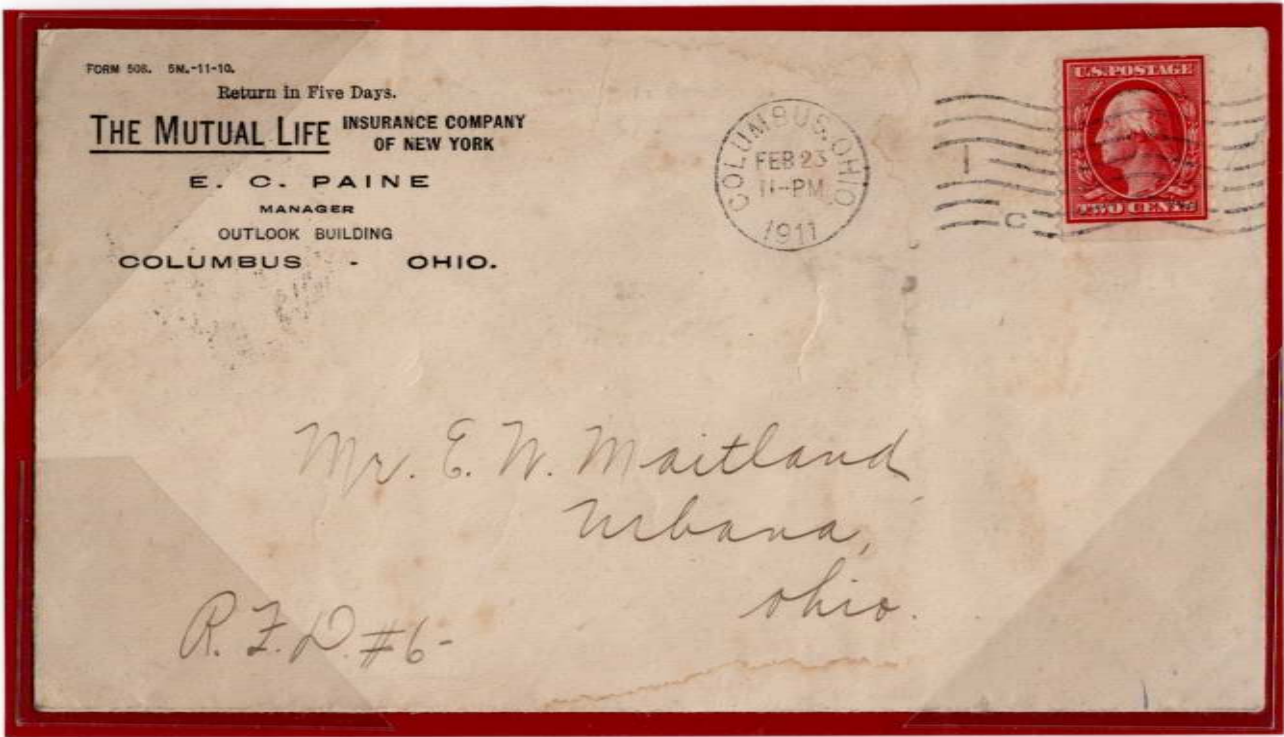 FORM 508. 5M.-11-10.
Return in Five Days.
THE MUTUAL LIFE INSURANCE COMPANY
OF NEW YORK
E. C. PAINE
MANAGER
OUTLOOK BUILDING
COLUMBUS - OHIO.
COLUMBUS, OHIO
FEB 23
11-PM
1911
1
C
U.S. POSTAGE
TWO CENTS
Mr. E. W. Maitland
Urbana,
Ohio.
R.F.D. #6-